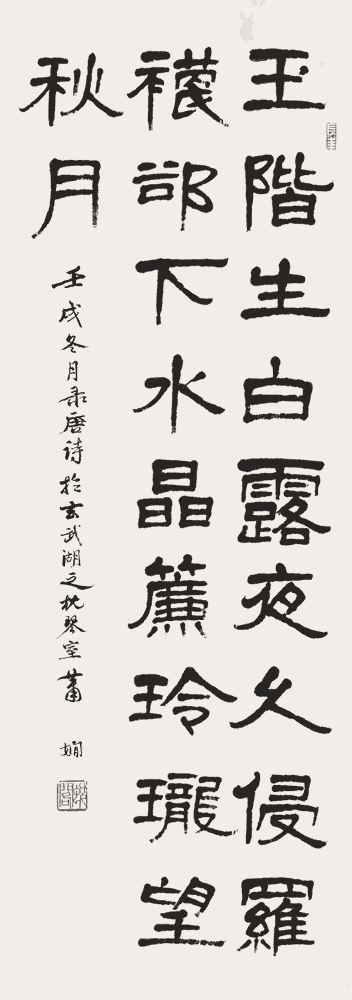 玉階生白露夜久侵羅
襪卻下水晶簾玲瓏望
秋月
壬戌冬月录唐詩於玄武湖之枕琴室蕭嫻